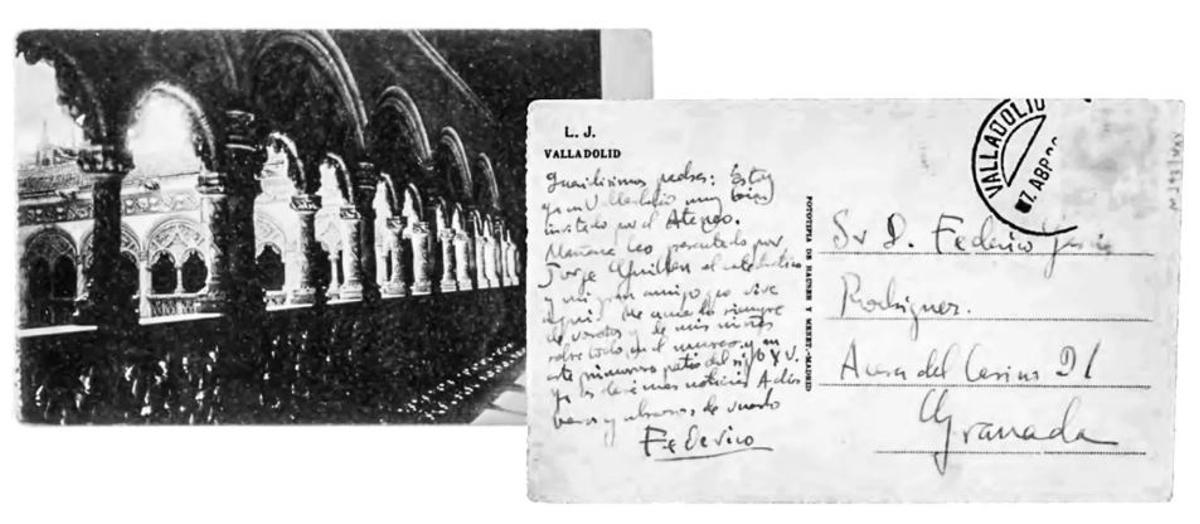 L. J.
VALLADOLID
Queridísimos padres: Estoy
ya en Valladolid muy bien
invitado por el Ateneo.
Mañana leo presentado por
Jorge Guillen el catedratico
y mi gran amigo que vive
aquí. Me acuerdo siempre
de vosotros y de mis niñas
sobre todo en el museo y en
este primoroso patio del siglo XV.
Ya os daré mas noticias Adios
besos y abrazos de vuestro
Federico
FOTOTIPIA DE HAUSER Y MENET.-MADRID
VALLADOLID
7. ABR
Sr D. Federico García
Rodriguez.
Acera del Casino 31
Granada